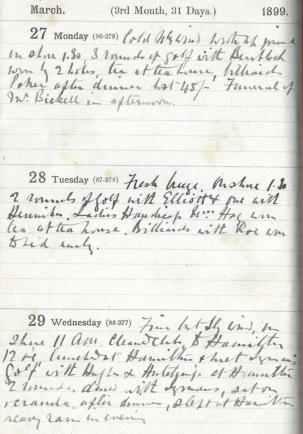 March. (3rd Month, 31 Days.) 1899.
27 Monday (86-279) Cold NW wind
on shore 1.30, 3 rounds of golf with
won by 2 holes, tea at tea house, billiards
Poker after dinner lost 45/- Funeral of
Mr. Bickell in afternoon.
28 Tuesday (87-278) Fresh breeze. On shore 1.30
2 rounds of golf with Elliott & one with
Ladies Handicap Miss Hog won
tea at tea house. Billiards with Roe won
to bed early.
29 Wednesday (88-277) Fine but Sly wind, on
shore 11 AM. to Hamilton
12 lunched at Hamilton & met
Golf with & at Hamilton
2 rounds. dined with sat on
veranda after dinner, slept at Hamilton
heavy rain in evening